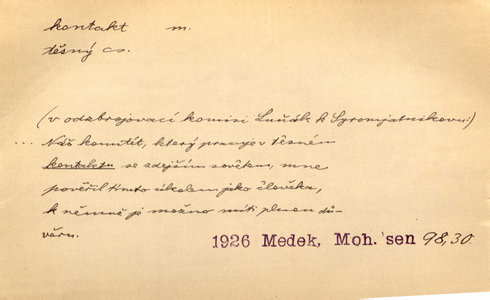 kontakt m.
těsný cs.
(v odzbrojovací komisi Luňák k Syromjatnikovu:)
... Náš komitét, který pracuje v těsném
kontaktu se zdejším sovětem, mne
pověřil tímto úkolem jako člověka,
k němuž je možno míti plnou dů-
věru.
1926 Medek, Moh. sen 98, 30.